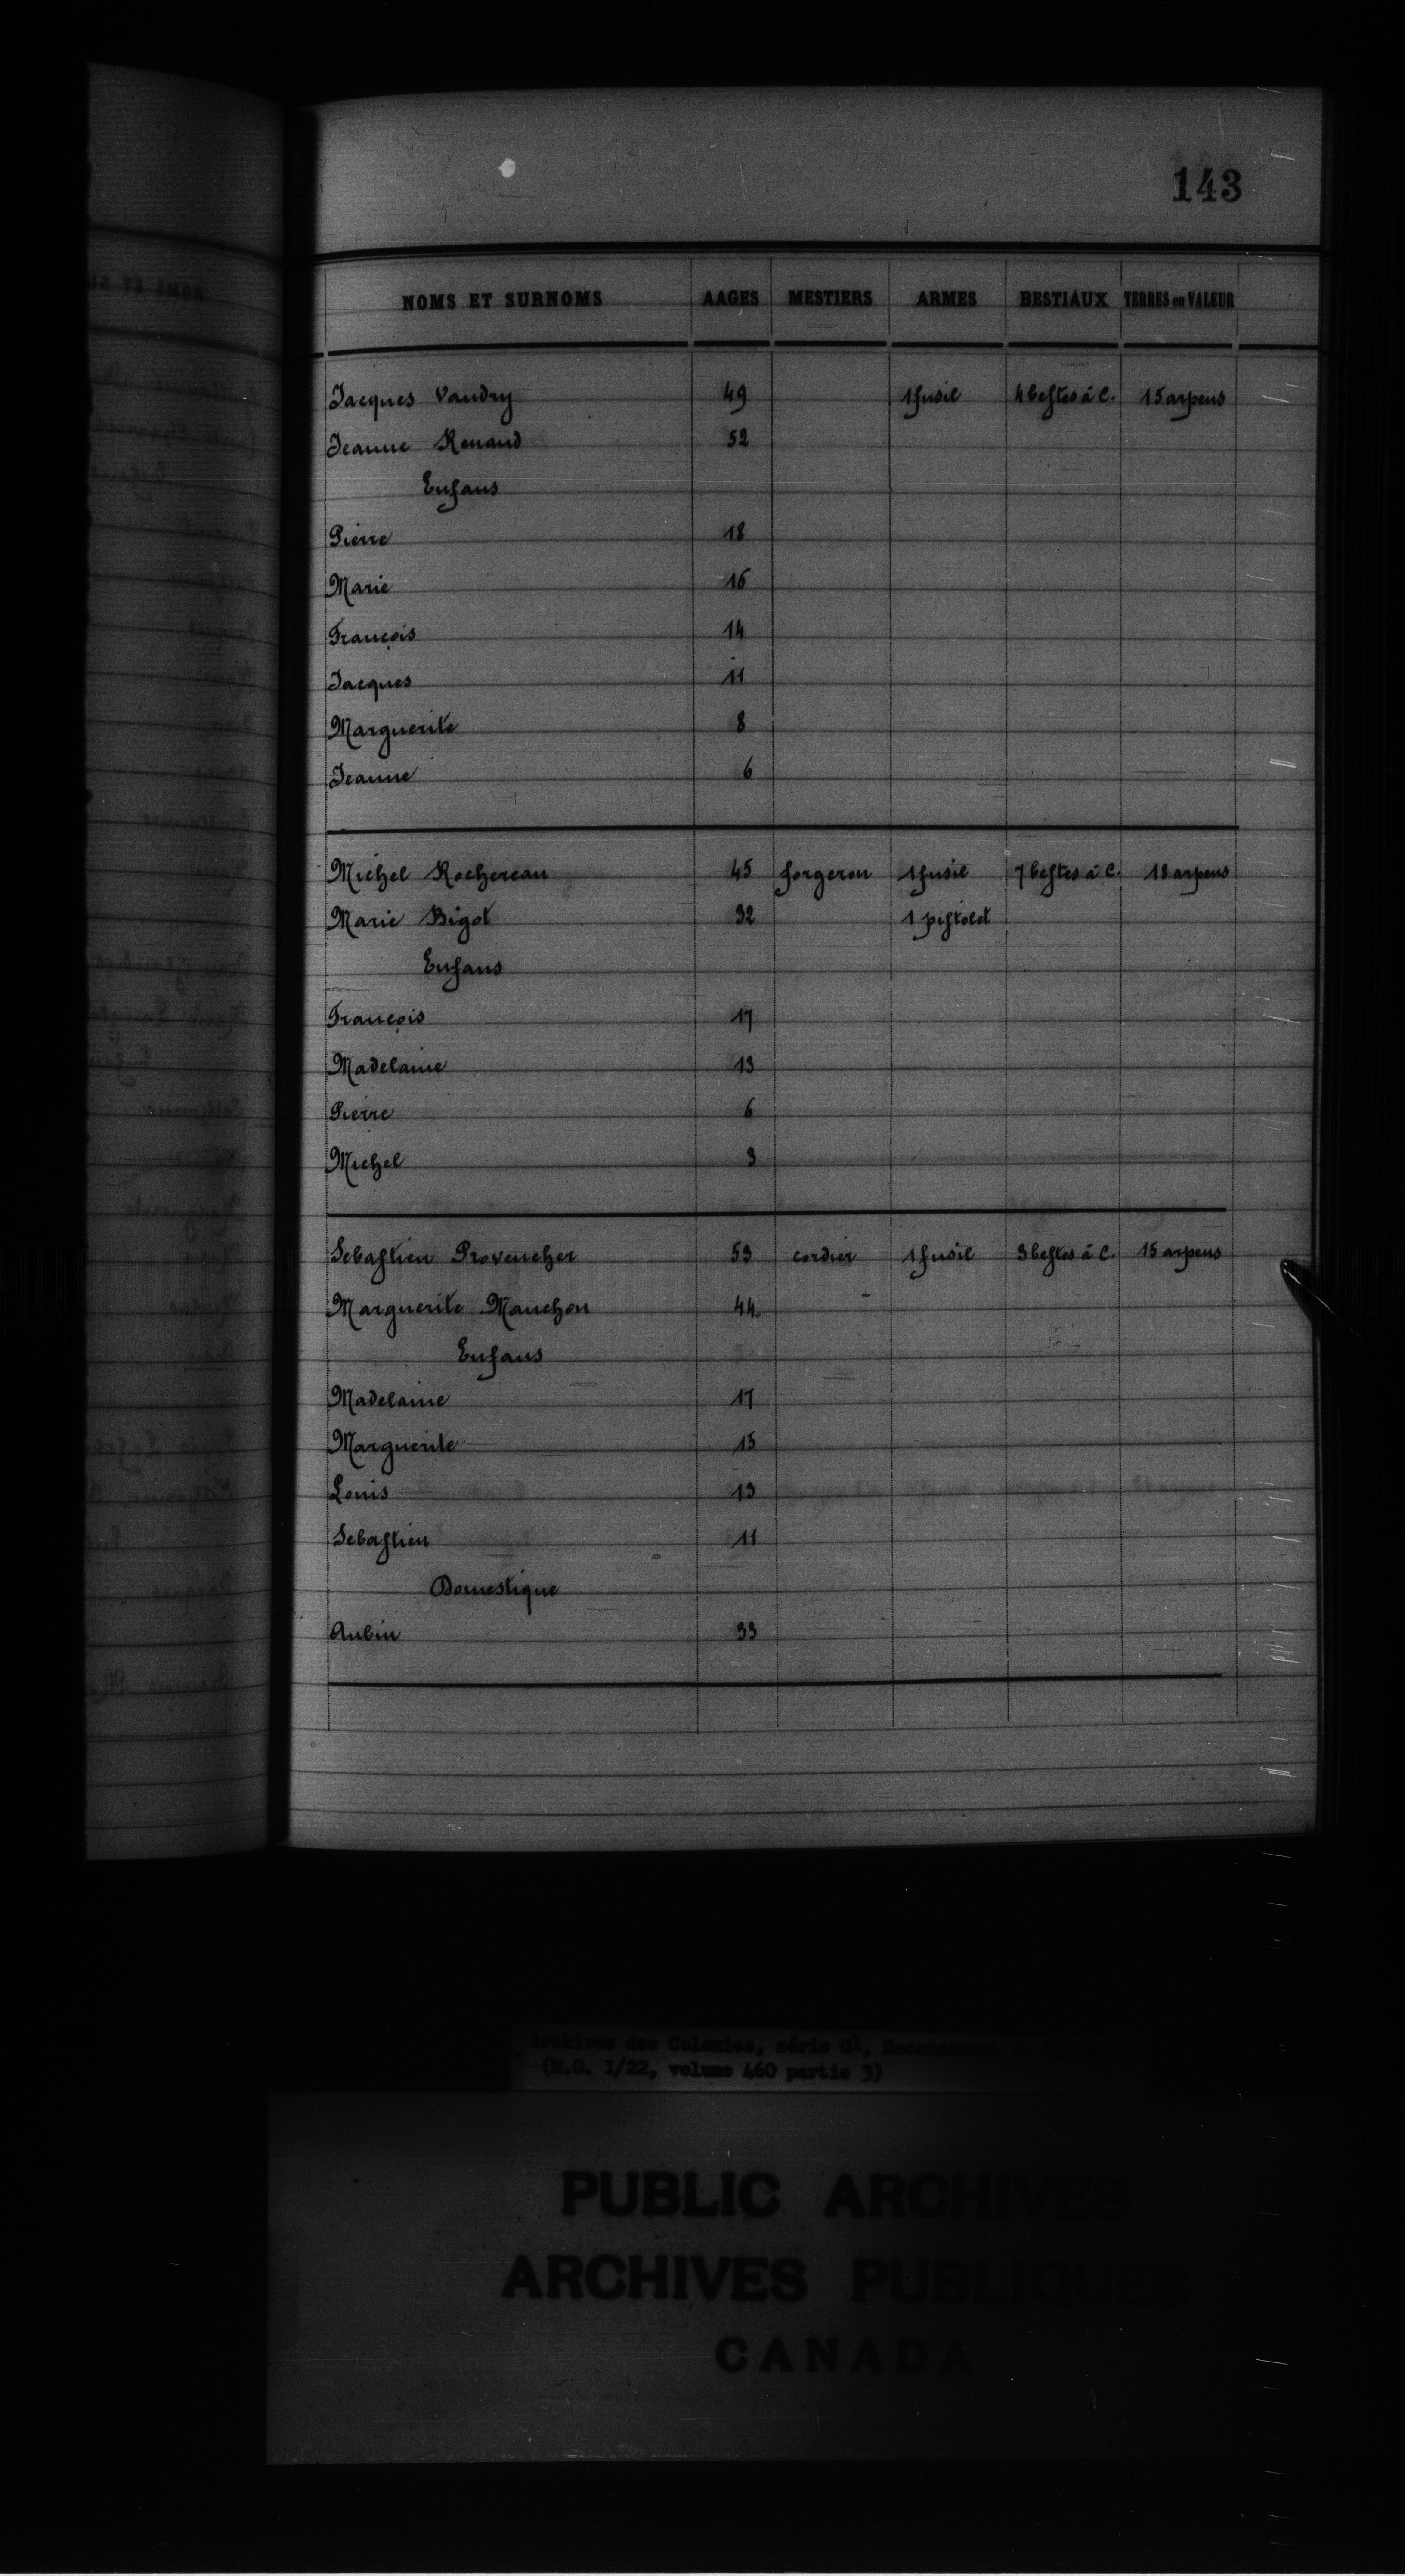 143
NOMS ET SURNOMS AAGES MESTIERS ARMES BESTIAUX TERRES en VALEUR
Jacques Vaudry 49 1 fusil 4 bestes à C. 15 arpens
Jeanne Renaud 52
Enfans
Pierre 18
Marie 16
François 14
Jacques 11
Marguerite 8
Jeanne 6
Michel Rochereau 45 forgeron 1 fusil 7 bestes à C. 18 arpens
Marie Bigot 32 1 pistolet
Enfans
François 17
Madelaine 13
Pierre 6
Michel 3
Sebastien Provencher 53 cordier 1 fusil 3 bestes à C. 15 arpens
Marguerite Manchon 44
Enfans
Madelaine 17
Marguerite 15
Louis 13
Sebastien 11
Domestique
Aubin 33
Archives des Colonies, série G1, Recensement
(M.G. 1/22, volume 460 partie 3)
PUBLIC ARCHIVES
ARCHIVES PUBLIQUES
CANADA